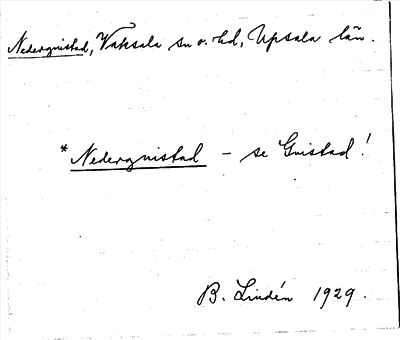 Nedergnistad, Vaksala sn o. hd, Upsala län.
*Nedergnistad - se Gnistad!
B. Lindén 1929.